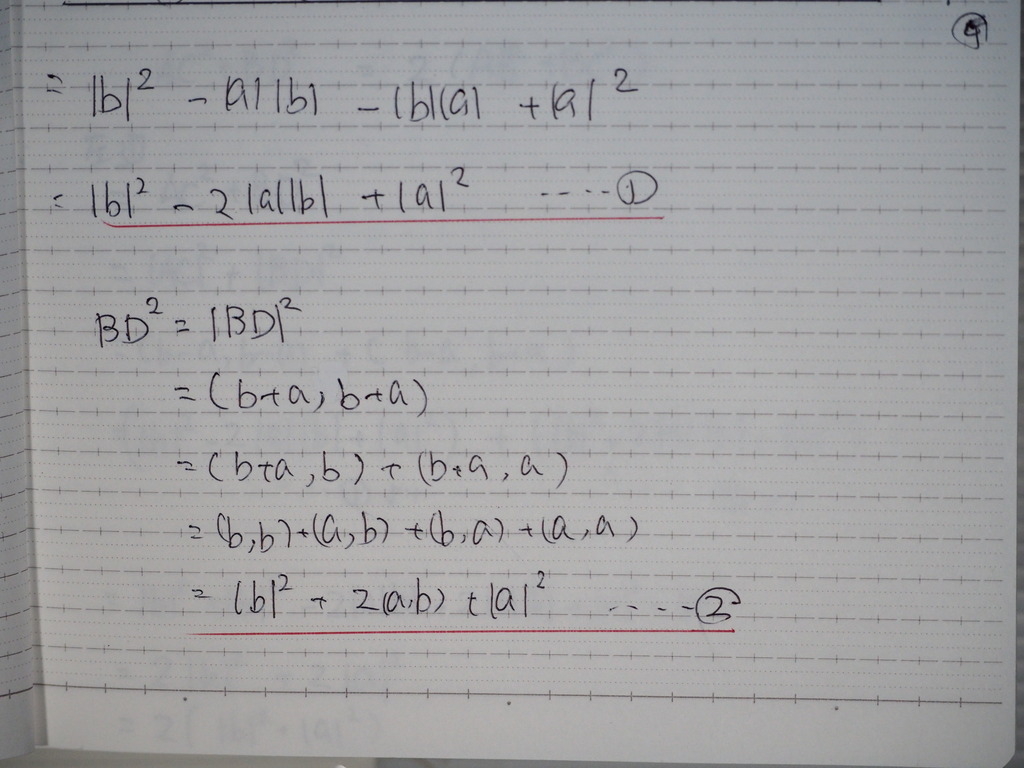 = |b|² - |a||b| - |b||a| + |a|²
= |b|² - 2|a||b| + |a|² ····①
BD² = |BD|²
= (b+a, b+a)
= (b+a, b) + (b+a, a)
= (b,b)+(a,b)+(b,a)+(a,a)
= |b|² + 2(a,b) + |a|² ····②